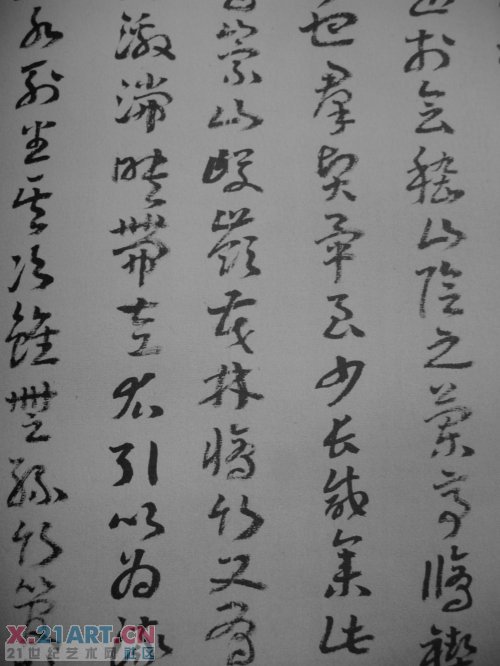 於會稽山陰之蘭亭脩禊
也羣賢畢至少長咸集此
崇山峻嶺茂林脩竹又有
激湍暎帶左右引以為流
水列坐其次雖無絲竹管
X.21ART.CN
21世纪艺术网社区